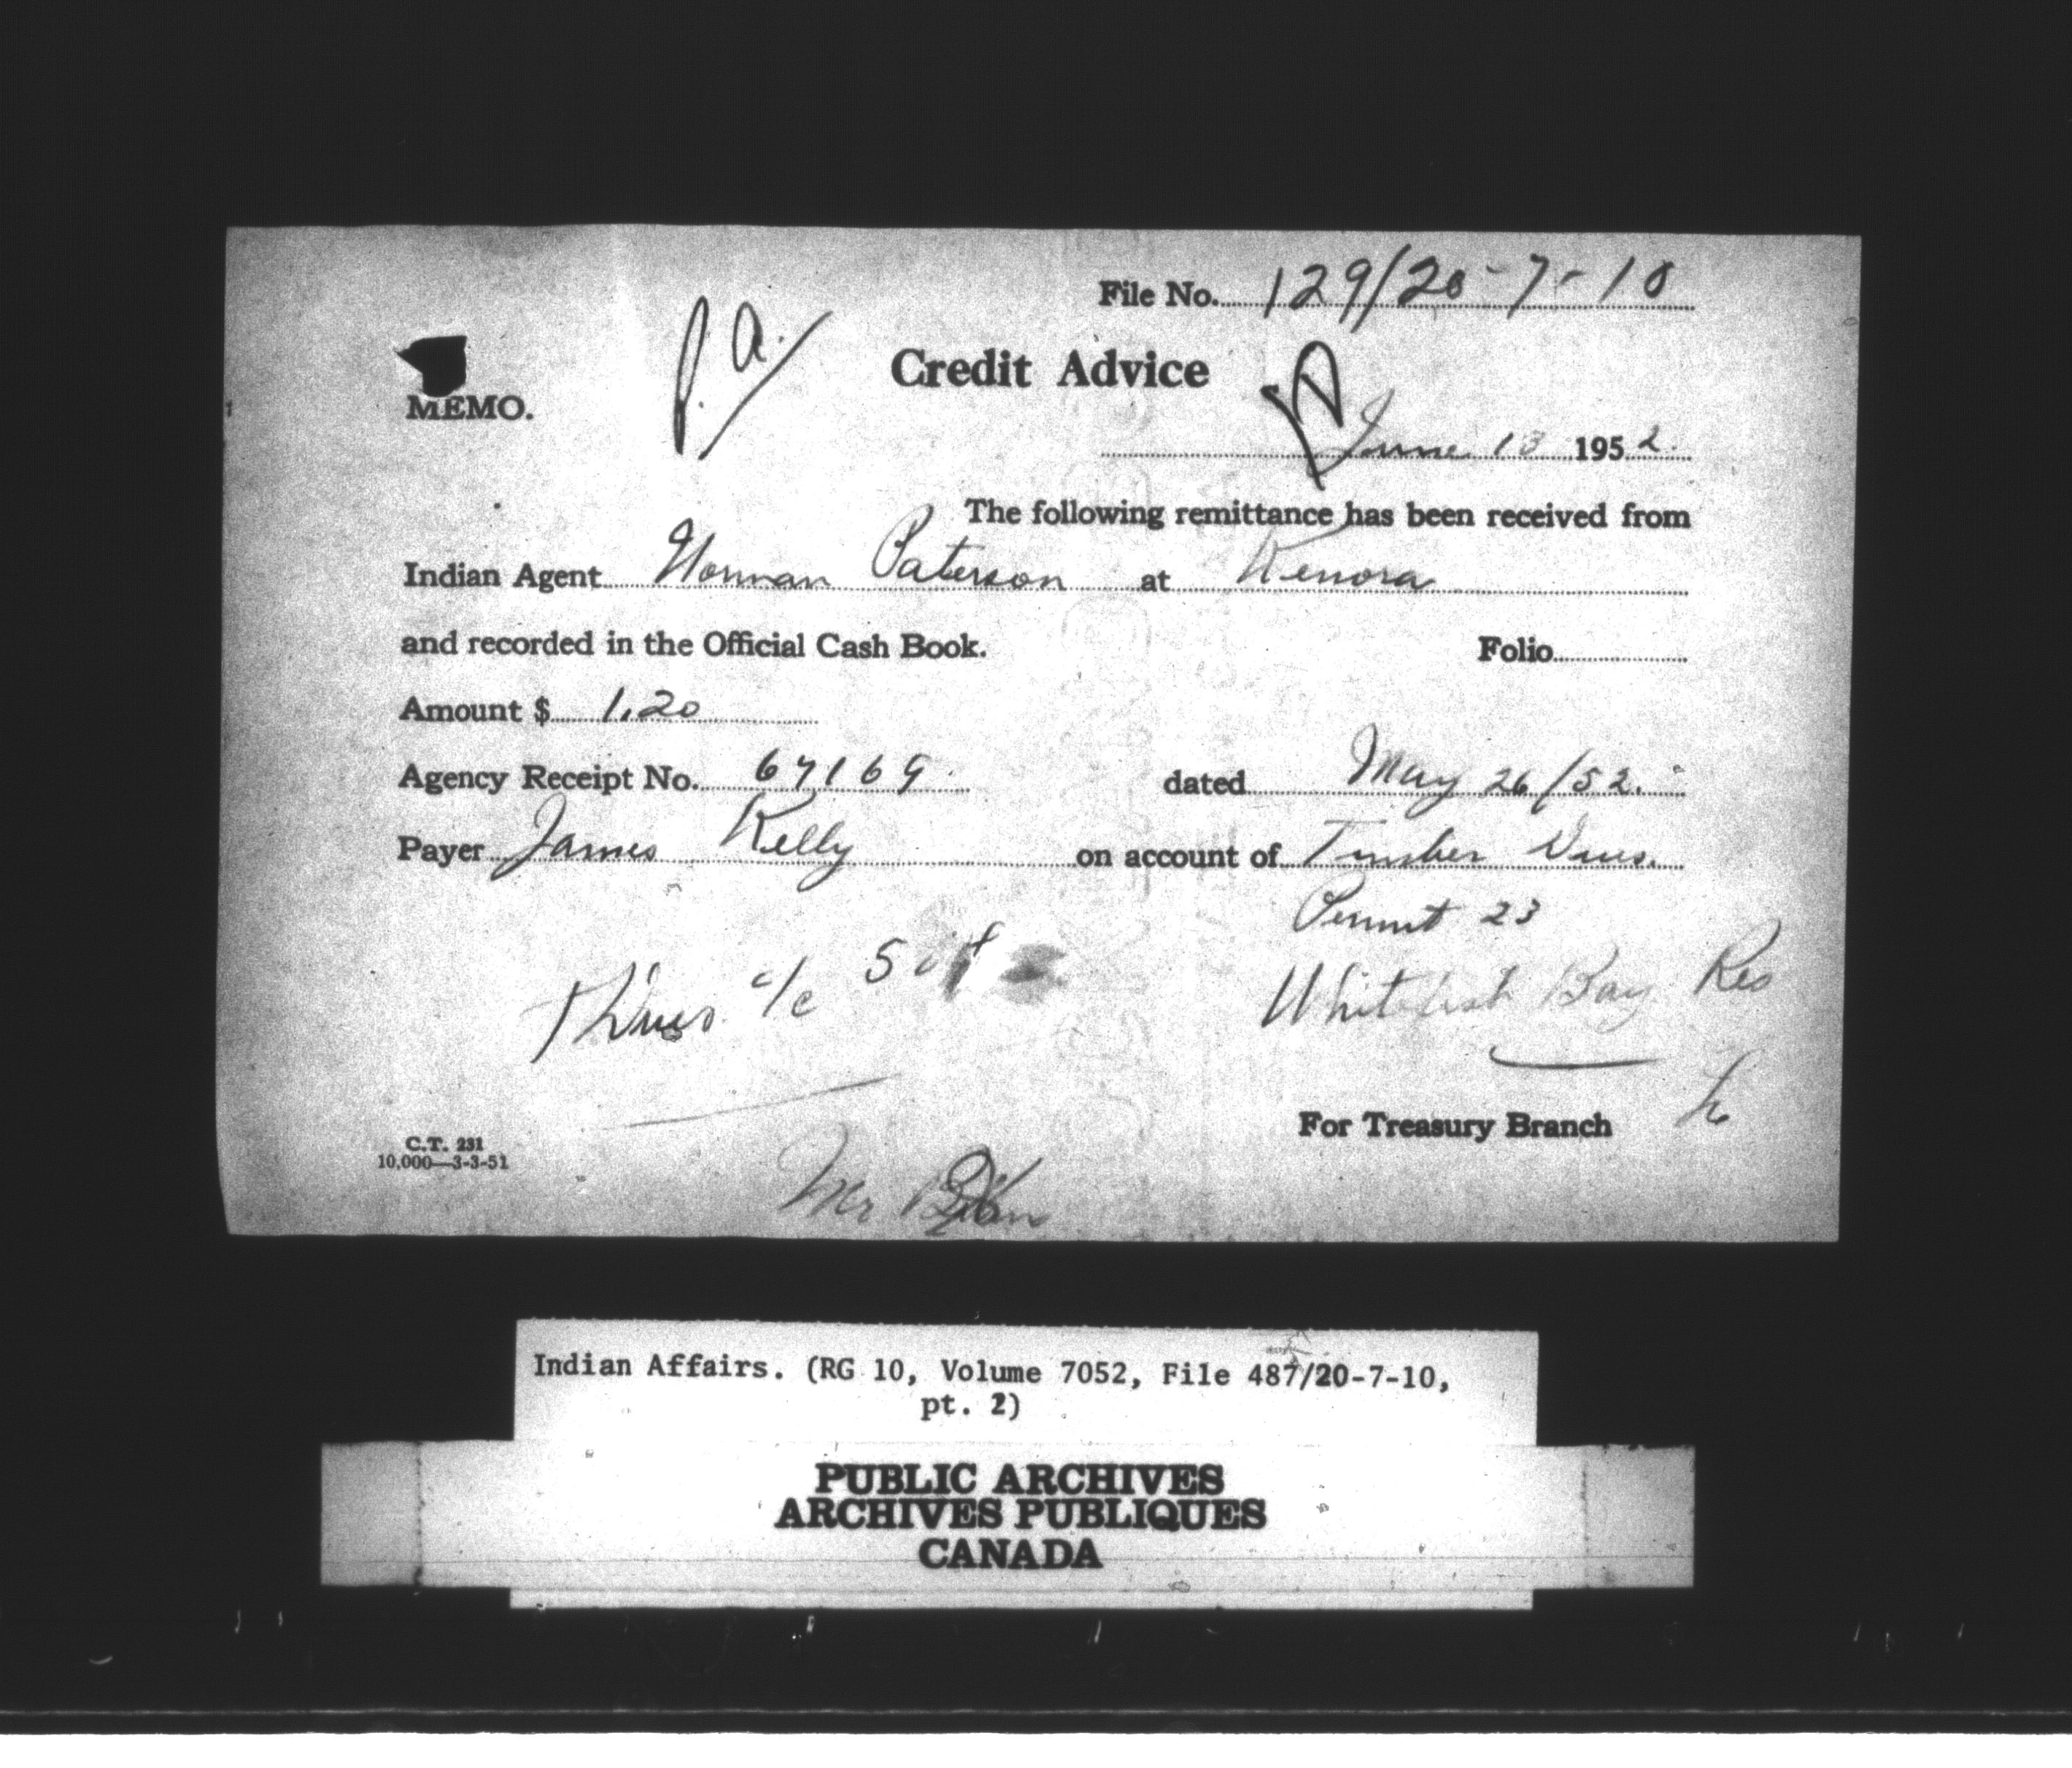 File No. 129/20-7-10
P.A.
Credit Advice
MEMO.
June 13 1952.
The following remittance has been received from
Indian Agent Norman Paterson at Kenora
and recorded in the Official Cash Book. Folio
Amount $ 1.20
Agency Receipt No. 67169 dated May 26/52.
Payer James Kelly on account of Timber Dues.
Permit 23
Whitefish Bay Res
T Dues a/c
For Treasury Branch
C.T. 231
10,000—3-3-51
Mr
Indian Affairs. (RG 10, Volume 7052, File 487/20-7-10,
pt. 2)
PUBLIC ARCHIVES
ARCHIVES PUBLIQUES
CANADA